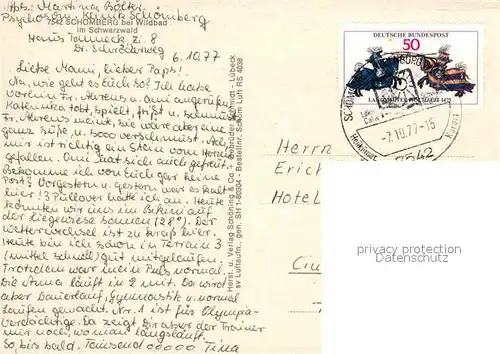 Abs: Martina Bölter
Psychosom. Klinik Schömberg
7542 SCHÖMBERG bei Wildbad
im Schwarzwald
Haus Tanneck, Zi. 8
Dr. Schröderweg
6.10.77
Liebe Mami, lieber Paps!
Na, wie geht es Euch so? Ich habe
vorhin Fr. Ahrens u. Omi angerufen
Katinka tobt, spielt, frißt u. schmust
Fr. Ahrens meinte, sie wäre aber eine
ganz Süße u. sooo verschmust. Also,
mir ist richtig ein Stein vom Herzen
gefallen. Omi hat sich auch gefreut.
Bekomme ich von Euch gar keine
Post? Vorgestern u. gestern war es kalt
hier! 3 Pullover hatte ich an. Heute
könnten wir uns im Bikini auf
der Liegewiese sonnen (28°). Der
Wetterwechsel ist zu kraß hier.
Heute bin ich schon in Terrain 3
(mittel schnell) gut mitgelaufen.
Trotzdem war mein Puls normal.
Die Anna läuft in 2 mit. Da wird
aber Dauerlauf, Gymnastik u. normal
Laufen gemacht. Nr. 1 ist für Olympia-
verdächtige. Da zeigt Dir aber der Trainer
nur noch, wo man langsläuft.
So, bis bald. Tausend ooooo Tina
Horst u. Verlag Schöning & Co + Gebrüder Schmidt - Lübeck
sv Luftaufn., gen. SH 1-80304 - Bestellnr. Schöm Luft RS 4038
DEUTSCHE BUNDESPOST
50
LANDSHUTER HOCHZEIT 1475
-7.10.77-15
Heilklimat.
Kurort
7542
Herrn
Erich
Hotel